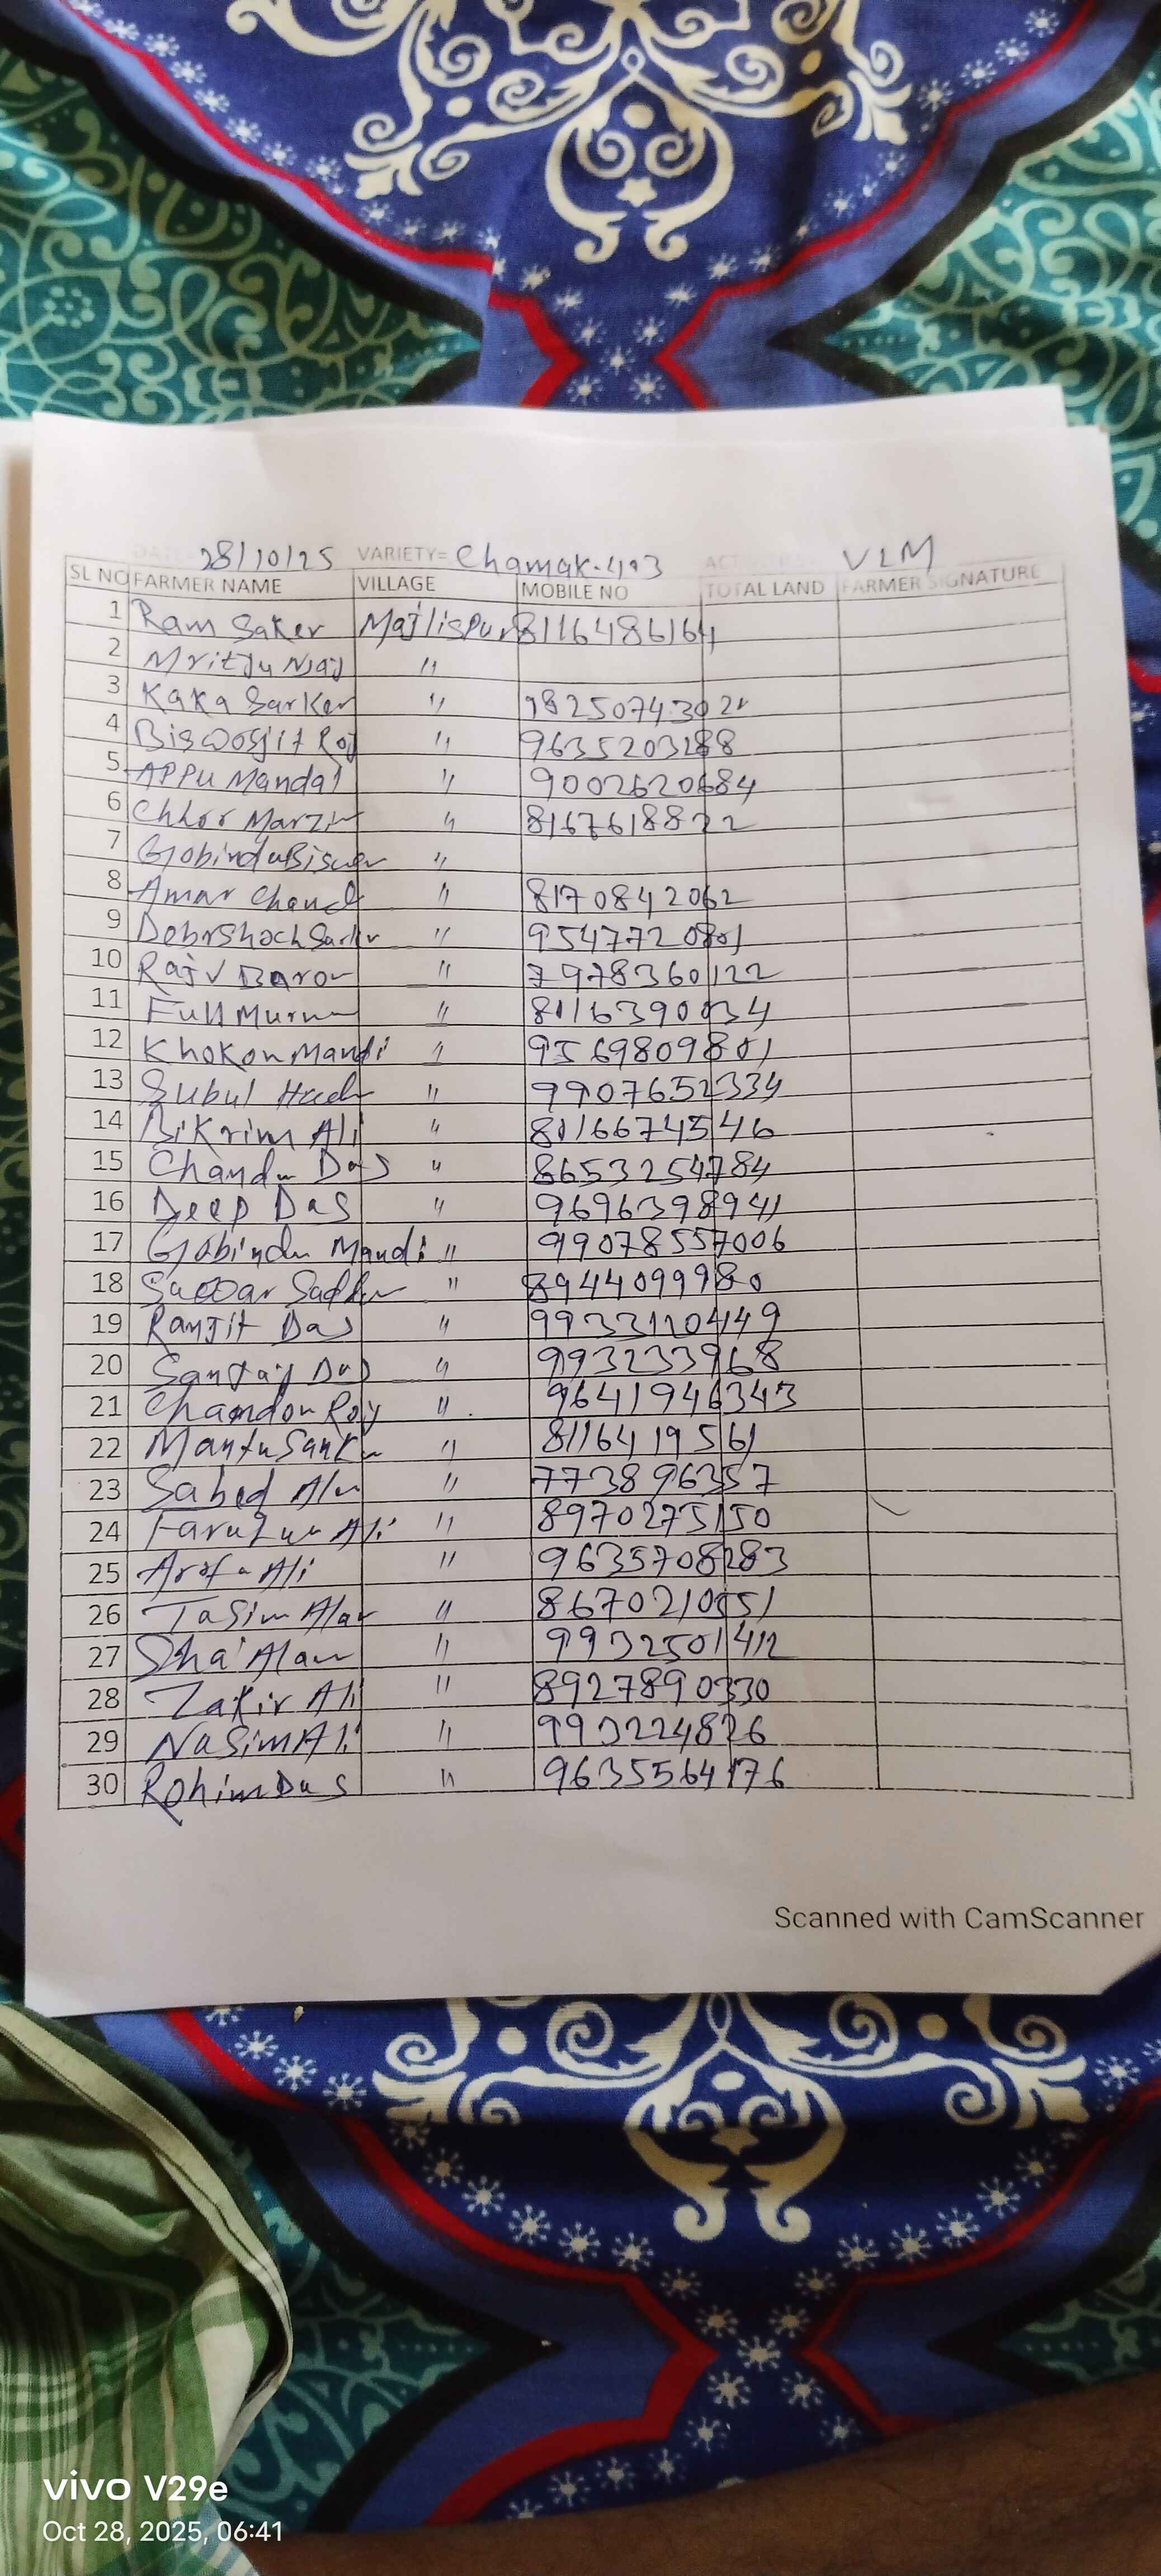 DATE= 28/10/25 VARIETY= Chamak-493 VLM
SL NO FARMER NAME VILLAGE MOBILE NO TOTAL LAND FARMER SIGNATURE
1 Ram Saker Majlispur 8116486164
2 Mritju Naj "
3 Kaka Sarker "
4 Biswosjit Roj " 9635203288
5 APPu Mandal " 9002620684
6 Chhor "
7 Gobindu "
8 Amar Chand " 8170842062
9 "
10 " 7978360122
11 Full Murmu " 8116390034
12 Khokon Mandi " 9569809801
13 Subul " 9907652334
14 Bikrim Ali " 8116674546
15 Chandu Das " 8653254784
16 Deep Das " 9696398941
17 Gobindu Mandi " 99078557006
18 " 8944099980
19 Ranjit Das " 9933110449
20 Sanjay Das " 993233968
21 Chandon Roy " 9641946343
22 Mantu " 8116419561
23 Sahed " 773896357
24 Ali " 8970275150
25 Ali " 9635708283
26 Tasim Alam " 8670210551
27 Sha' Alam " 9932501412
28 Zakir Ali " 8927890330
29 Nasim Ali " 993224826
30 Rohim Das " 9635564176
Scanned with CamScanner
vivo V29e
Oct 28, 2025, 06:41